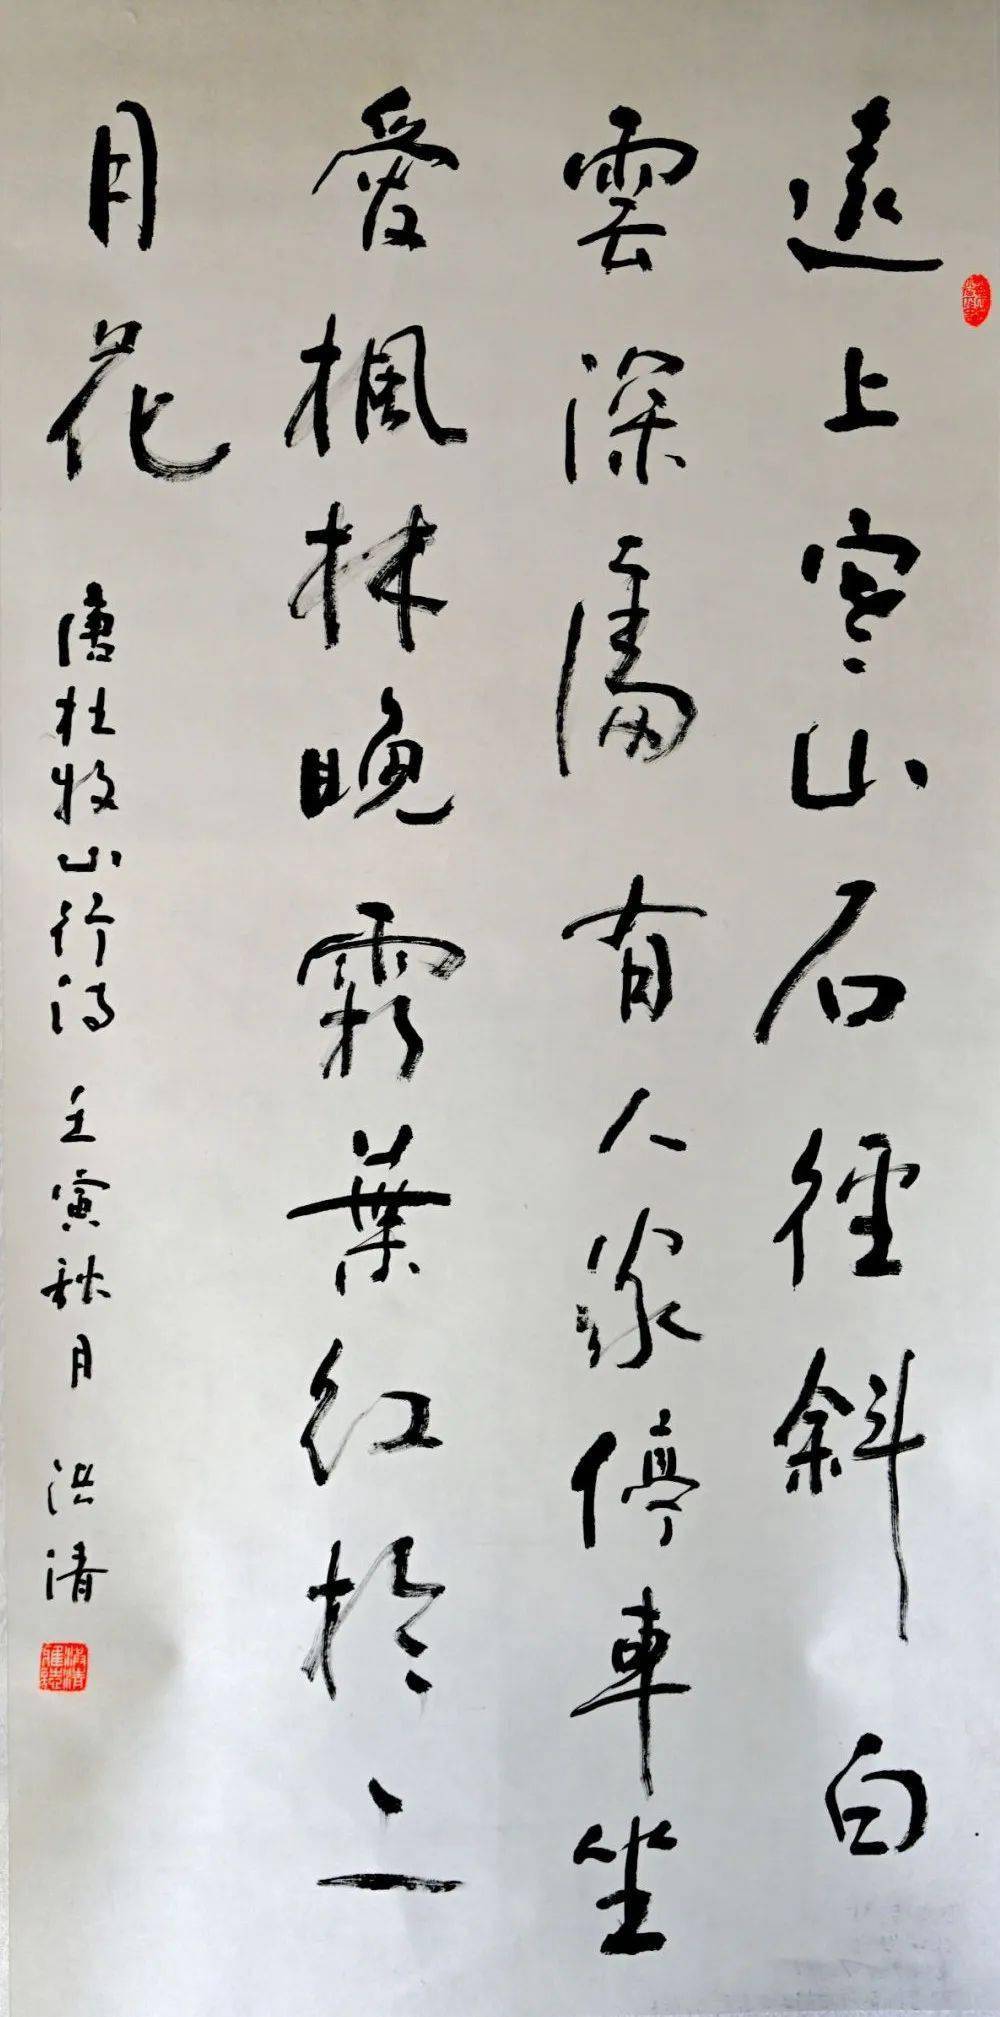 遠上寒山石徑斜白
雲深處有人家停車坐
愛楓林晚霜葉紅於二
月花 唐杜牧山行詩 壬寅秋月 洪清